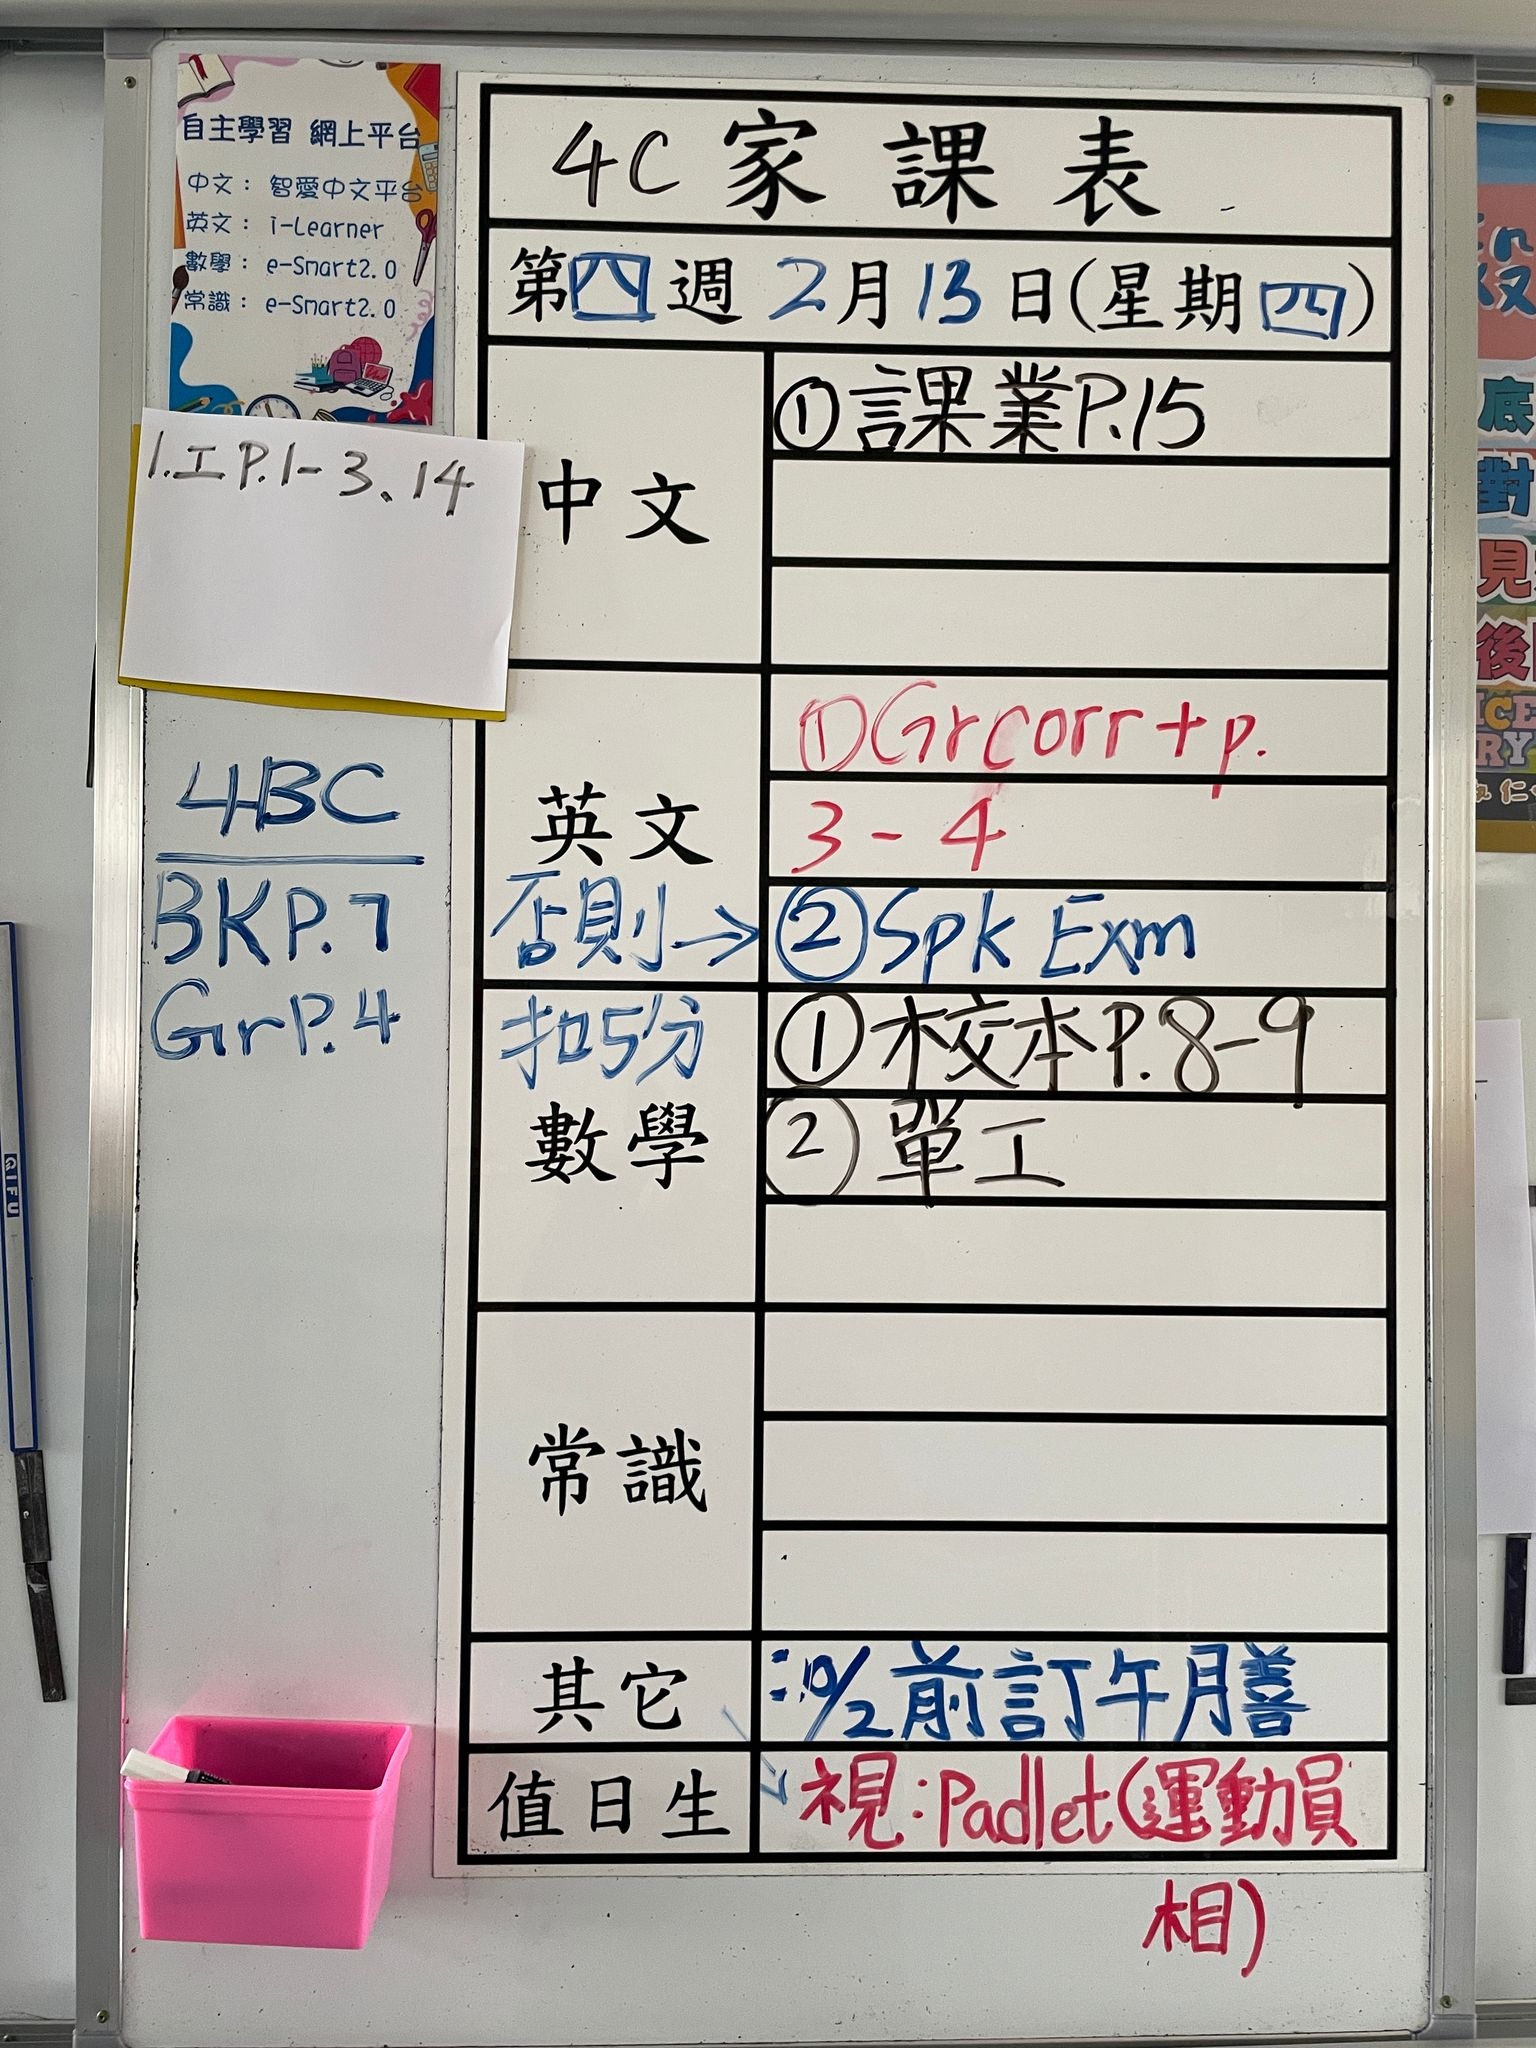 自主學習 網上平台
中文：智愛中文平台
英文：i-Learner
數學：e-Smart2.0
常識：e-Smart2.0
1.工P.1-3、14
4BC
BKP.7
GrP.4
4C 家課表
第四週 2月13日(星期四)
中文
①課業P.15
英文
①Gr corr + p.
3-4
否則→②Spk Exm
扣5分
數學
①校本P.8-9
②單工
常識
其它
10/2前訂午膳
值日生
視：Padlet(運動員
相)
QIFU
底
對
見
後